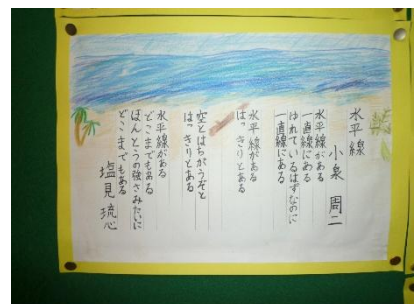 水平線
小泉 周二
水平線がある
一直線にある
ゆれているはずなのに
一直線にある
水平線がある
はっきりとある
空とはちがうぞと
はっきりとある
水平線がある
どこまでもある
ほんとうの強さみたいに
どこまでもある
塩見 琉心